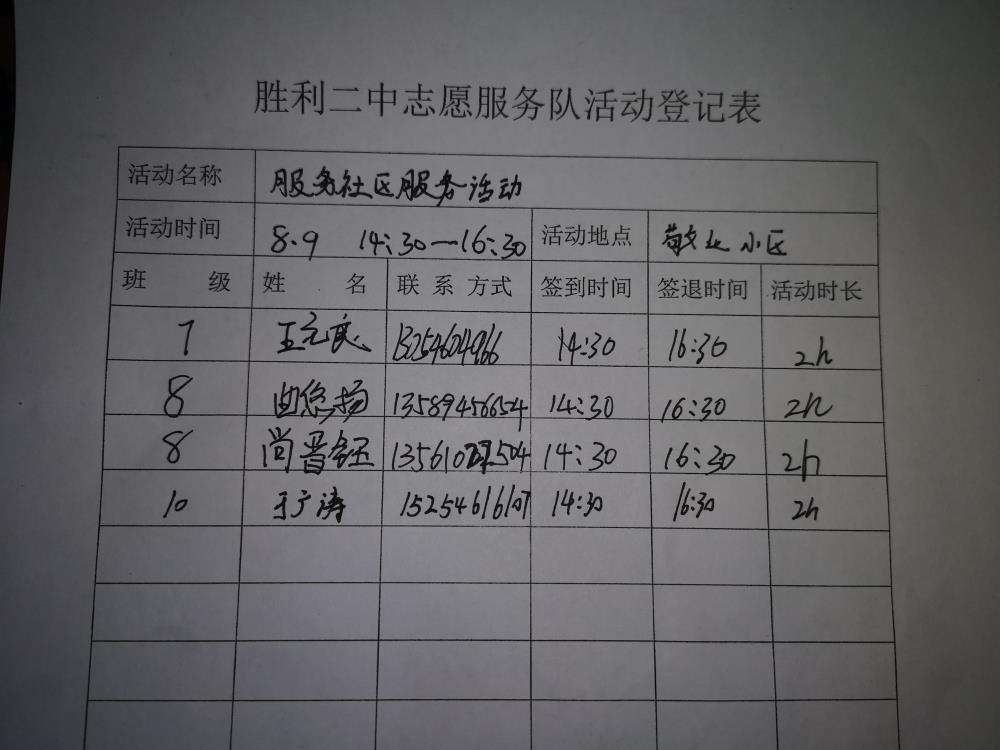 胜利二中志愿服务队活动登记表
活动名称 服务社区服务活动
活动时间 8.9 14:30—16:30 活动地点 小区
班级 姓名 联系方式 签到时间 签退时间 活动时长
7 王元良 13254604966 14:30 16:30 2h
8 曲悠扬 13589456654 14:30 16:30 2h
8 尚晋钰 14:30 16:30 2h
10 于广涛 15254616107 14:30 16:30 2h